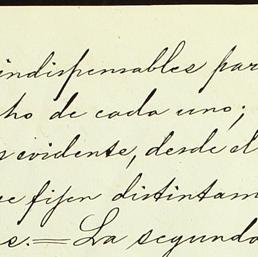 indispensables par
ho de cada uno;
s evidente, desde el
ue fijen distintam
s.=La segunda